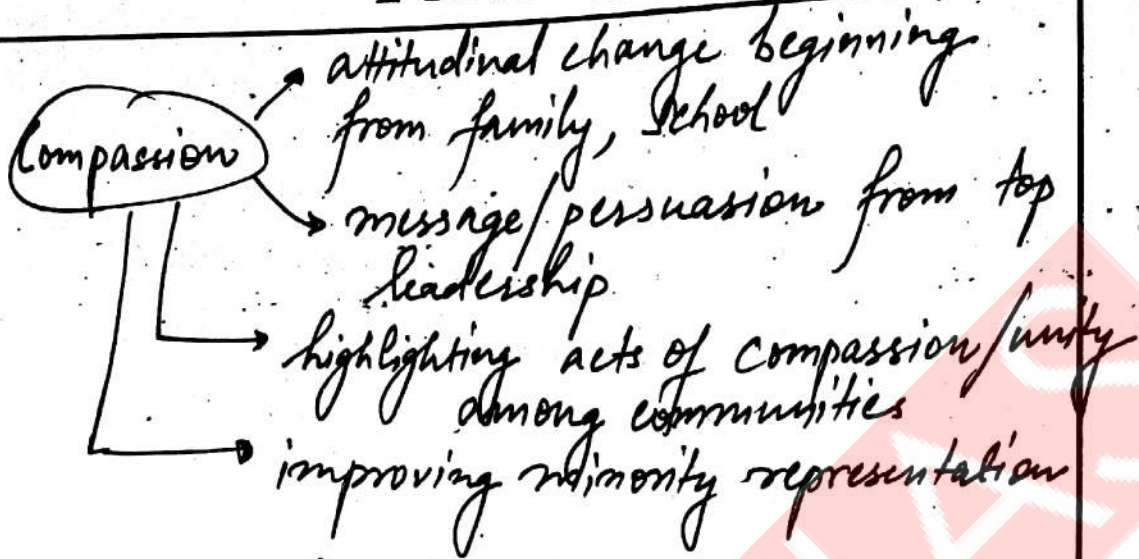 attitudinal change beginning
from family, school
Compassion
message/persuasion from top
leadership
highlighting acts of compassion/unity
among communities
improving minority representation